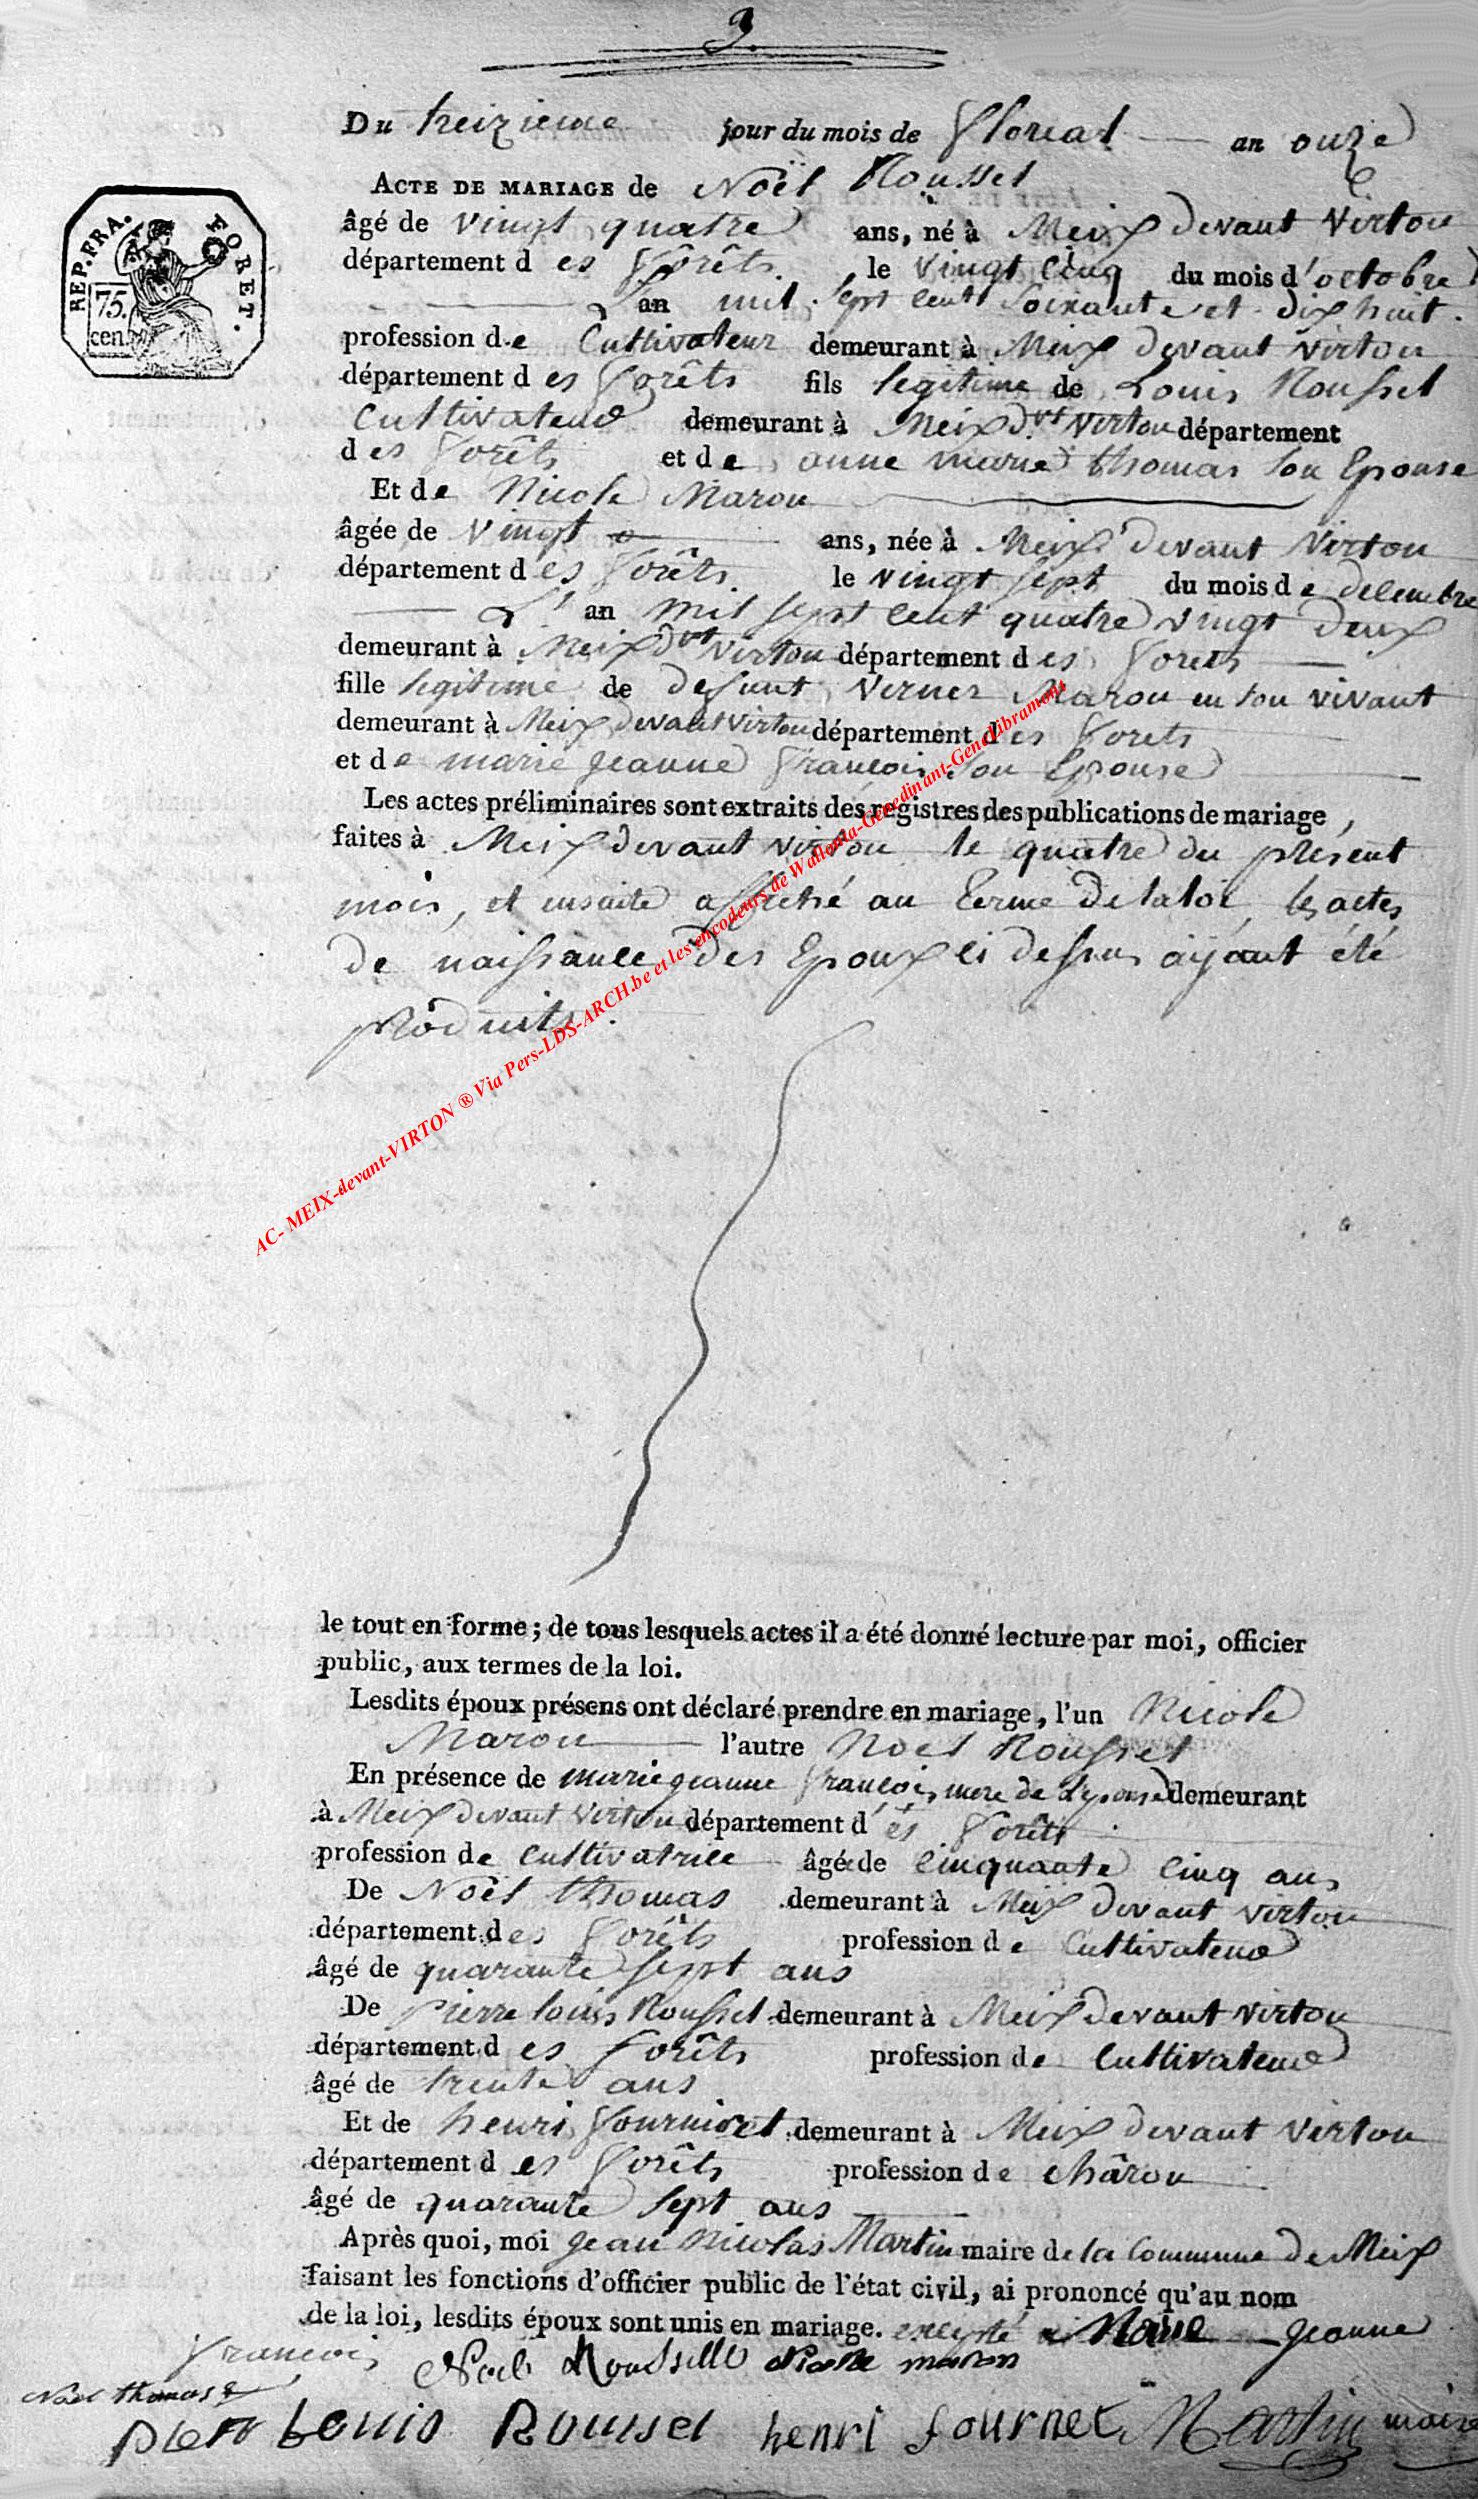 3.
Du treizieme jour du mois de floreal an onze
ACTE DE MARIAGE de Noël Roussel
REP. FRA. FORET.
75. cen.
âgé de vingt quatre ans, né à Meix devant Virton
département d es forêts le vingt cinq du mois d'octobre
l'an mil sept cent soixante et dix huit.
profession d e Cultivateur demeurant à Meix devant Virton
département d es forêts fils legitime de Louis Roussel
Cultivateur demeurant à Meix dvt Virton département
d es forêts et d e anne marie thomas son Epouse
Et d e Nicole Maron
âgée de vingt ans, née à Meix devant Virton
département d es forêts le vingt sept du mois d e decembre
L'an mil sept cent quatre vingt deux
demeurant à Meix dvt Virton département d es forets
fille legitime de defunt Verner Maron en son vivant
demeurant à Meix devant Virton département d es forets
et d e marie jeanne françois son Epouse
Les actes préliminaires sont extraits des registres des publications de mariage,
faites à Meix devant Virton le quatre du présent
mois, et ensuite affiché au terme de la loi, les actes
de naissance des Epoux ci dessus aÿant été
produits.
AC- MEIX-devant-VIRTON ® Via Pers-LDS-ARCH.be et les encodeurs de Wallonia-Genedinant-GeneLibramont
le tout en forme ; de tous lesquels actes il a été donné lecture par moi, officier
public, aux termes de la loi.
Lesdits époux présens ont déclaré prendre en mariage, l'un Nicole
Maron l'autre Noel Roussel
En présence de marie jeanne françois mere de L'epouse demeurant
à Meix devant Virton département d es forêts
profession de Cultivatrice âgée de cinquante cinq ans
De Noël thomas demeurant à Meix devant Virton
département d es forêts profession d e Cultivateur
âgé de quarante sept ans
De Pierre louis Roussel demeurant à Meix devant Virton
département d es forêts profession de Cultivateur
âgé de trente ans
Et de henri fourniret demeurant à Meix devant Virton
département d es forêts profession d e châron
âgé de quarante sept ans
Après quoi, moi jean nicolas Martin maire de la Commune de Meix
faisant les fonctions d'officier public de l'état civil, ai prononcé qu'au nom
de la loi, lesdits époux sont unis en mariage. excepté Marie jeanne
françois Noel Rousselle Nicolle maron
Noel thomas
pierr Louis Roussel henri fournet Martin maire